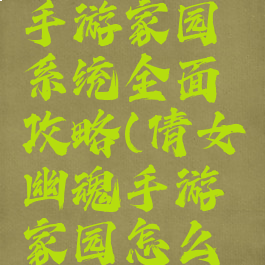 手游家园
系统全面
攻略(倩女
幽魂手游
家园怎么